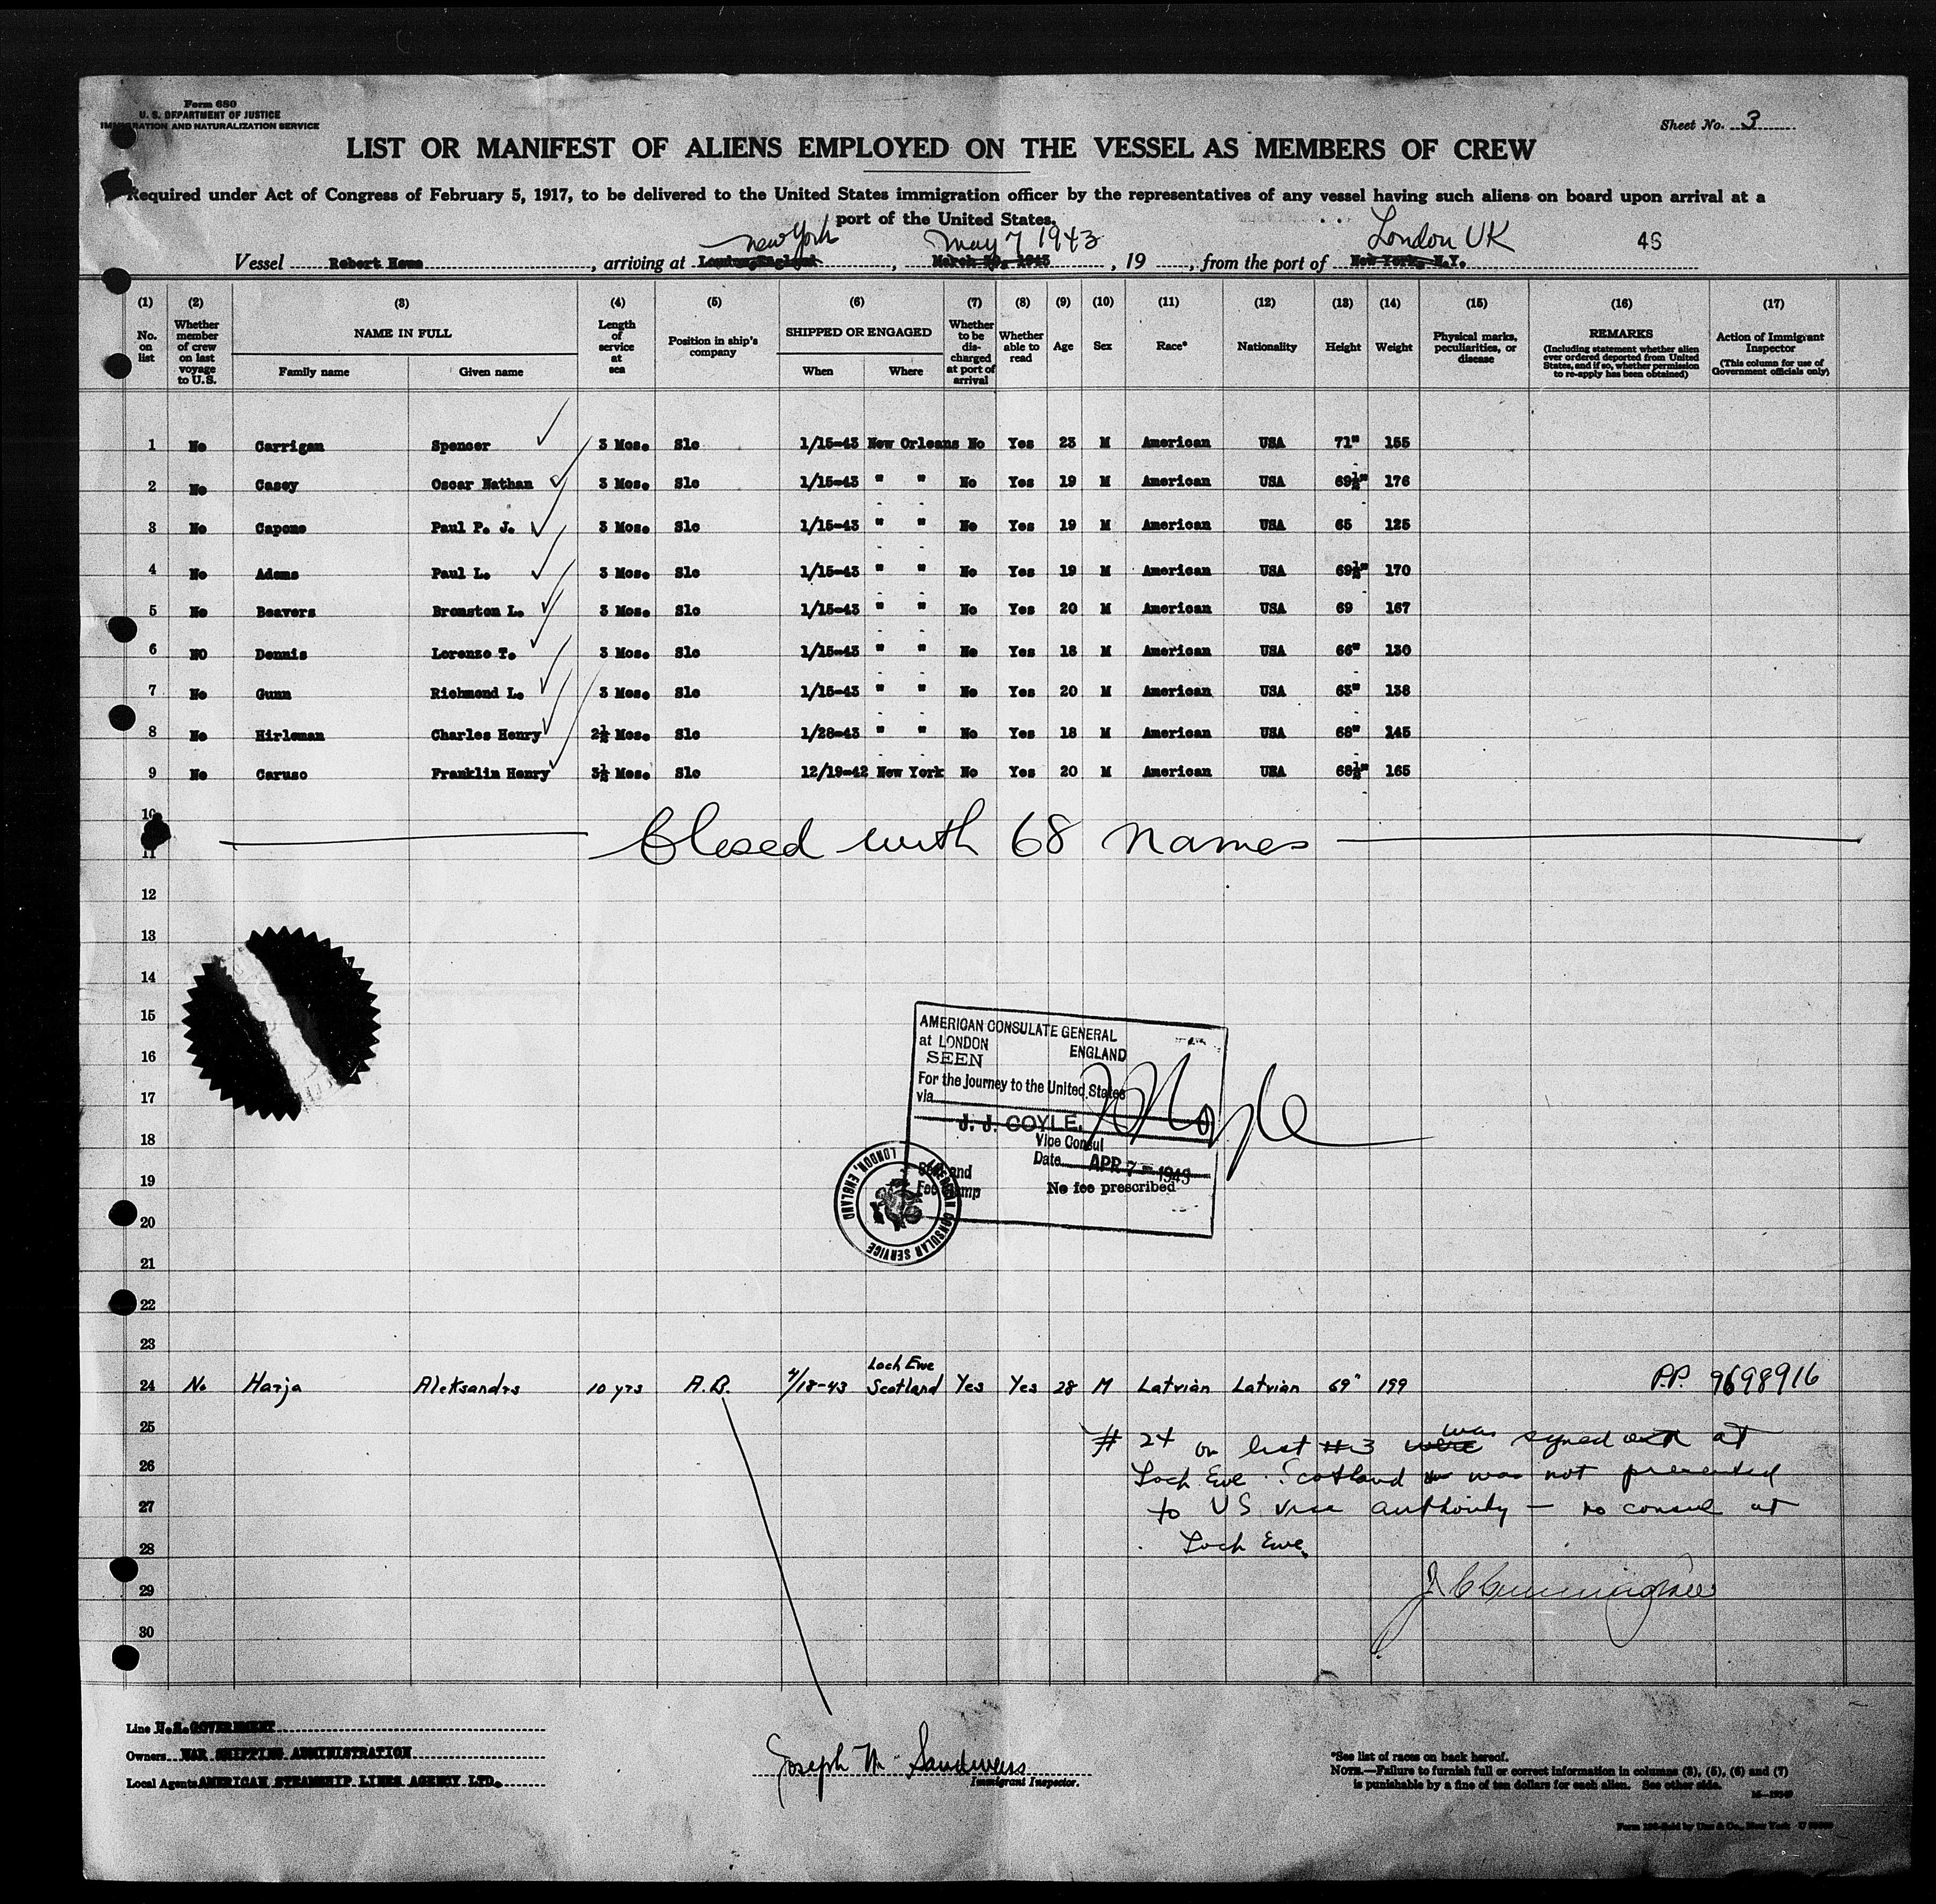 Form 680
U. S. DEPARTMENT OF JUSTICE
IMMIGRATION AND NATURALIZATION SERVICE
Sheet No. 3
LIST OR MANIFEST OF ALIENS EMPLOYED ON THE VESSEL AS MEMBERS OF CREW
Required under Act of Congress of February 5, 1917, to be delivered to the United States immigration officer by the representatives of any vessel having such aliens on board upon arrival at a
port of the United States.
New York May 7 1943 London UK 46
Vessel Robert Howe, arriving at London, England, March 30, 1943, 19 , from the port of New York, N.Y.
(1) (2) (3) (4) (5) (6) (7) (8) (9) (10) (11) (12) (13) (14) (15) (16) (17)
No. on list Whether member of crew on last voyage to U.S. NAME IN FULL Family name Given name Length of service at sea Position in ship's company SHIPPED OR ENGAGED When Where Whether to be discharged at port of arrival Whether able to read Age Sex Race* Nationality Height Weight Physical marks, peculiarities, or disease REMARKS (Including statement whether alien ever ordered deported from United States, and if so, whether permission to re-apply has been obtained) Action of Immigrant Inspector (This column for use of Government officials only)
1 No Carrigan Spencer 3 Mos. S1c 1/15-43 New Orleans No Yes 23 M American USA 71" 155
2 No Casey Oscar Nathan 3 Mos. S1c 1/15-43 " " No Yes 19 M American USA 69½" 176
3 No Capone Paul P. J. 3 Mos. S1c 1/15-43 " " No Yes 19 M American USA 65 125
4 No Adams Paul L. 3 Mos. S1c 1/15-43 " " No Yes 19 M American USA 69½" 170
5 No Beavers Bronston L. 3 Mos. S1c 1/15-43 " " No Yes 20 M American USA 69 167
6 NO Dennis Lorenzo T. 3 Mos. S1c 1/15-43 " " No Yes 18 M American USA 66" 130
7 No Gunn Richmond L. 3 Mos. S1c 1/15-43 " " No Yes 20 M American USA 63" 138
8 No Hirleman Charles Henry 2½ Mos. S1c 1/28-43 " " No Yes 18 M American USA 68" 145
9 No Caruso Franklin Henry 3½ Mos. S1c 12/19-42 New York No Yes 20 M American USA 68½" 165
10
Closed with 68 names
11
12
13
14
15
16
17
18
19
20
21
22
23
AMERICAN CONSULATE GENERAL
at LONDON ENGLAND
SEEN
For the journey to the United States
via
J. J. COYLE,
Vice Consul
Date APR 7 - 1943
Seal and
Fee Stamp No fee prescribed
AMERICAN CONSULAR SERVICE LONDON, ENGLAND
24 No Harja Aleksandrs 10 yrs A.B. 4/18-43 Loch Ewe Scotland Yes Yes 28 M Latvian Latvian 69" 199 P.P. 9698916
25 # 24 on list #3 were was signed on at
26 Loch Ewe Scotland was not presented
27 to US visa authority – no consul at
28 Loch Ewe.
29
30
Line U.S. GOVERNMENT
Owners WAR SHIPPING ADMINISTRATION
Local Agents AMERICAN STEAMSHIP LINES AGENCY LTD.
Joseph M.
Immigrant Inspector.
*See list of races on back hereof.
NOTE.—Failure to furnish full or correct information in columns (3), (5), (6) and (7)
is punishable by a fine of ten dollars for each alien. See other side.